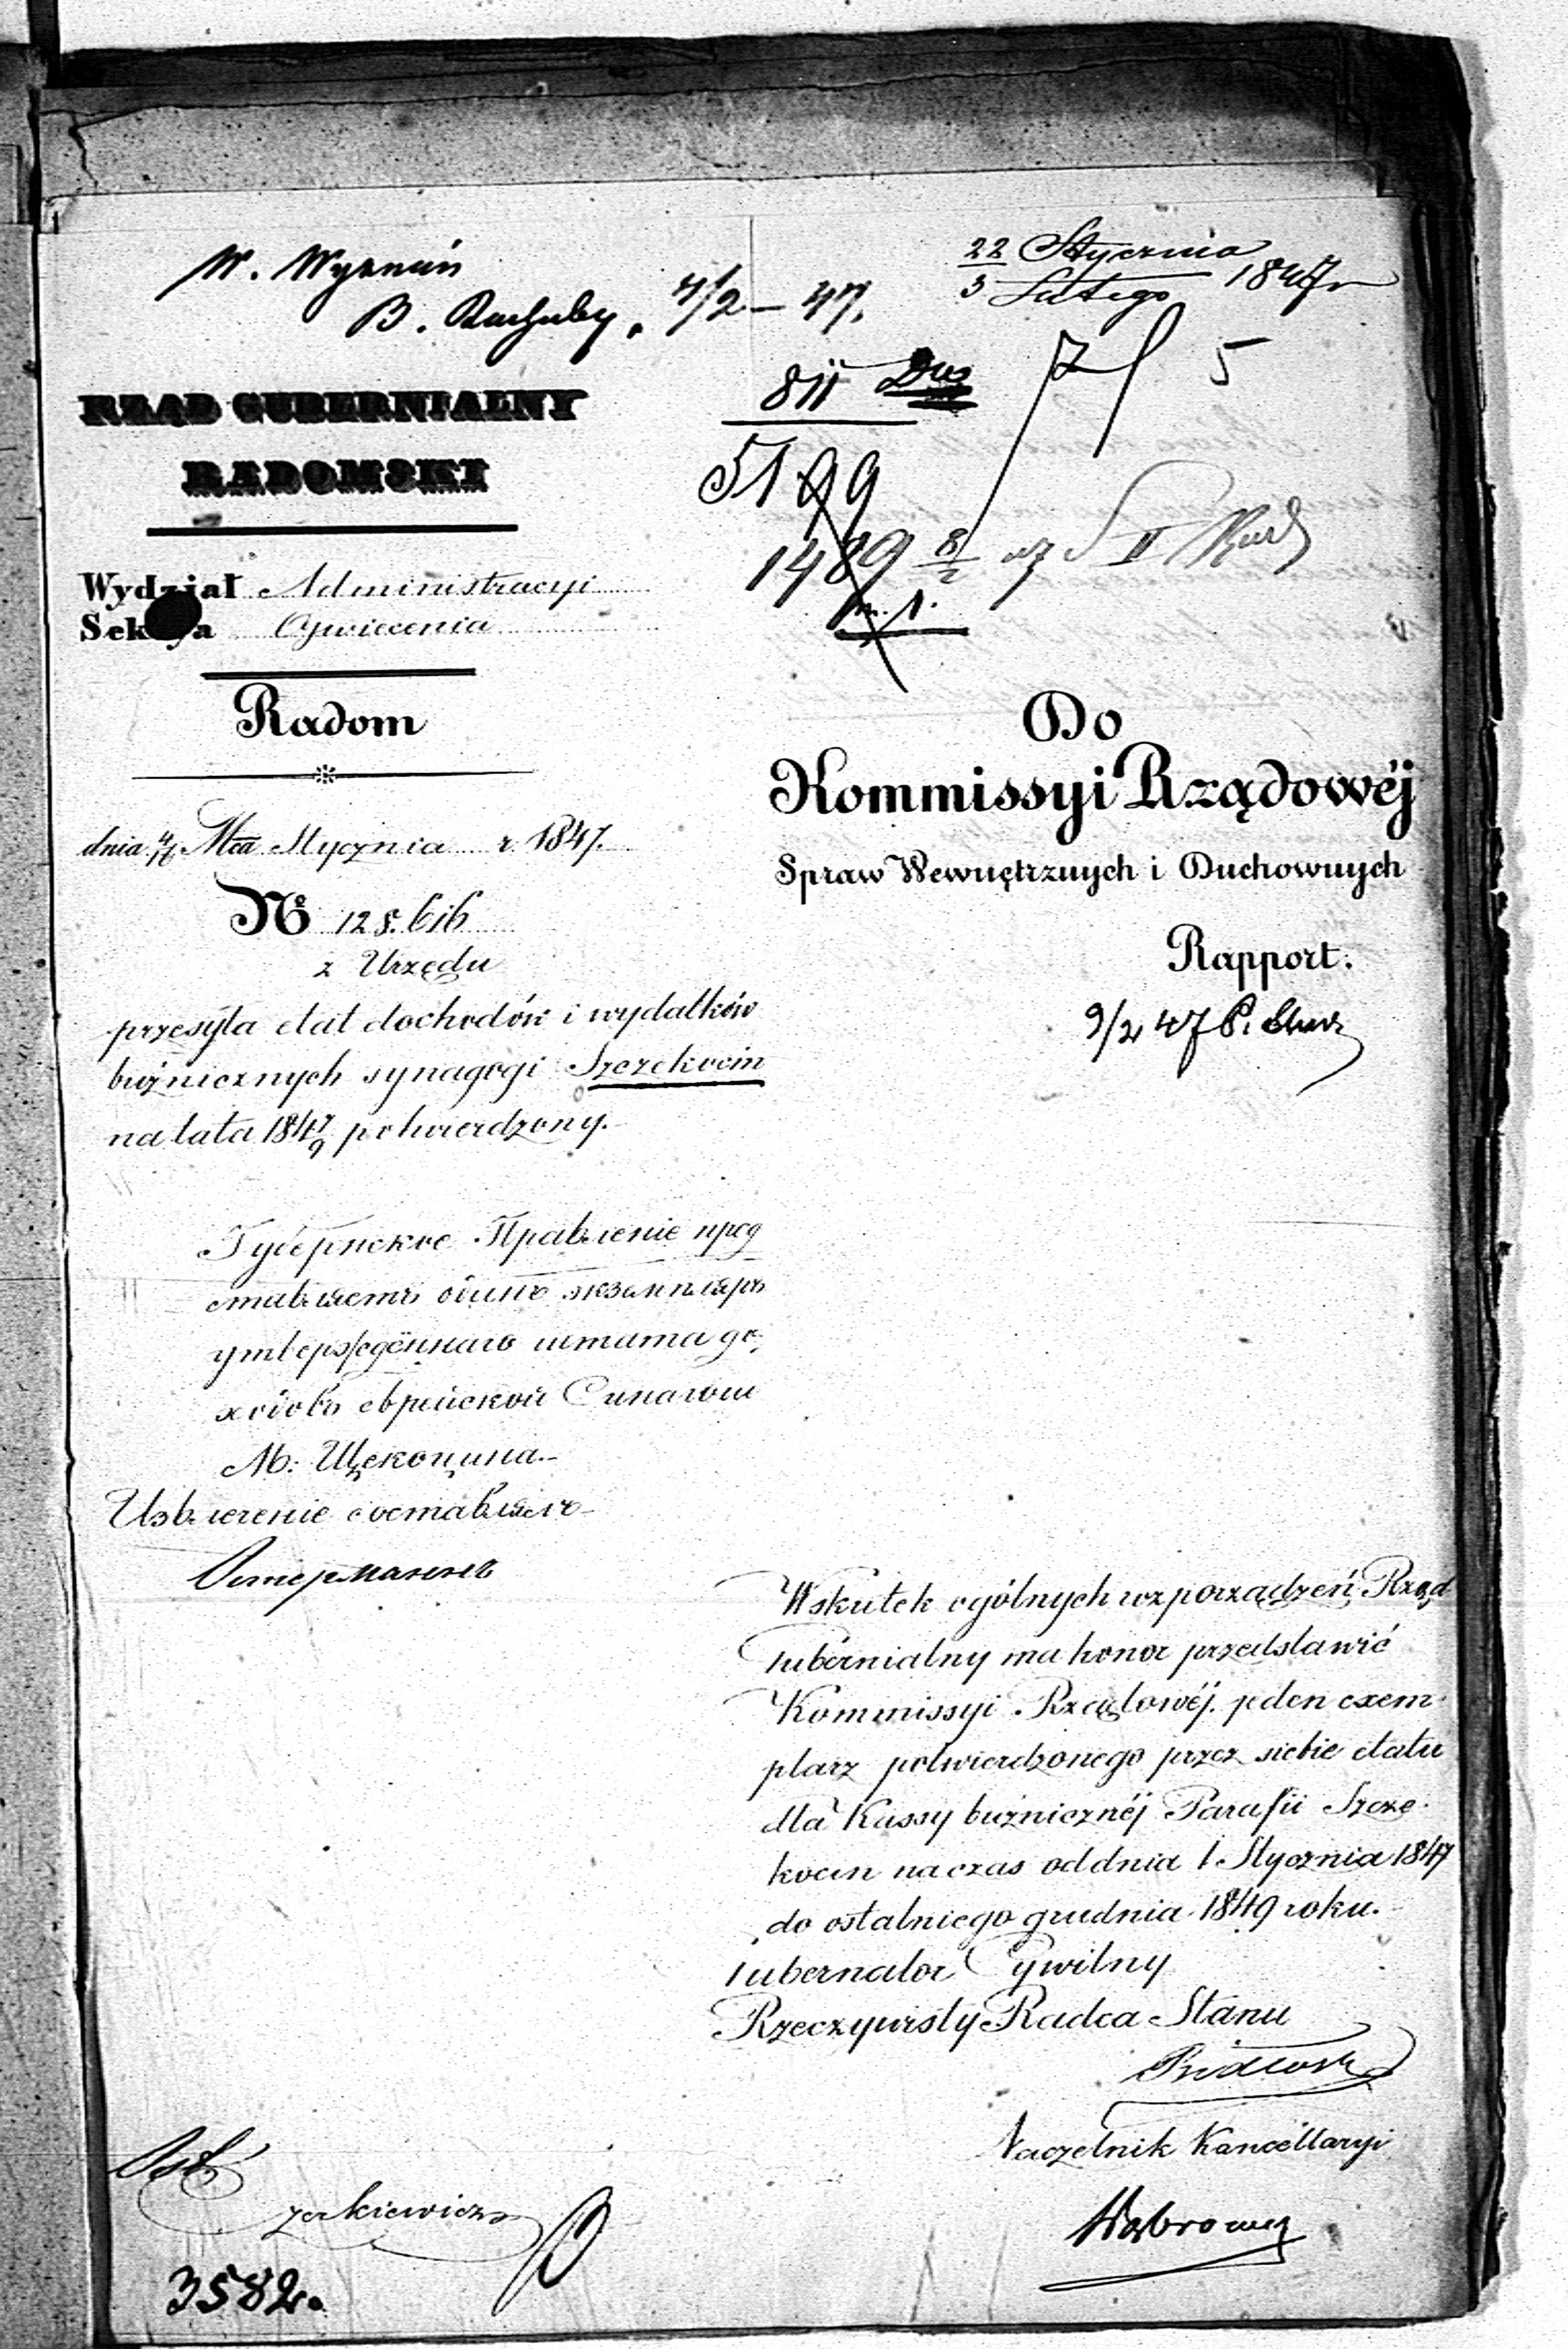 W. Wyznań
B. Rachuby. 4/2 – 47.
22 Stycznia
3 Lutego 1847 r
811
5
5199
1489 8/2
RZĄD GUBERNIALNY
RADOMSKI
Wydział Administracyi
Sekcya Oświecenia
Radom
dnia 4/16 Mca Stycznia r. 1847.
№ 128.616
z Urzędu
przesyła etat dochodów i wydatków
bużnicznych synagogi Szczekocin
na lata 1847/9 potwierdzony.
Губернское Правленіе пред
ставляетъ одинъ экземпляръ
утвержденнаго штата до-
ходовъ еврейской Синагоги
М: Щекоцина.
Извлеченіе составлялъ
Do
Kommissyi Rządowéj
Spraw Wewnętrznych i Duchownych
Rapport.
9/2 47
Wskutek ogólnych rozporządzeń, Rząd
Gubernialny ma honor przedstawić
Kommissyi Rządowéj jeden exem-
plarz potwierdzonego przez siebie etatu
dla Kassy bużnicznéj Parafii Szcze-
kocin na czas od dnia 1 Stycznia 1847
do ostatniego grudnia 1849 roku.
Gubernator Cywilny
Rzeczywisty Radca Stanu
Naczelnik Kancellaryi
3582.